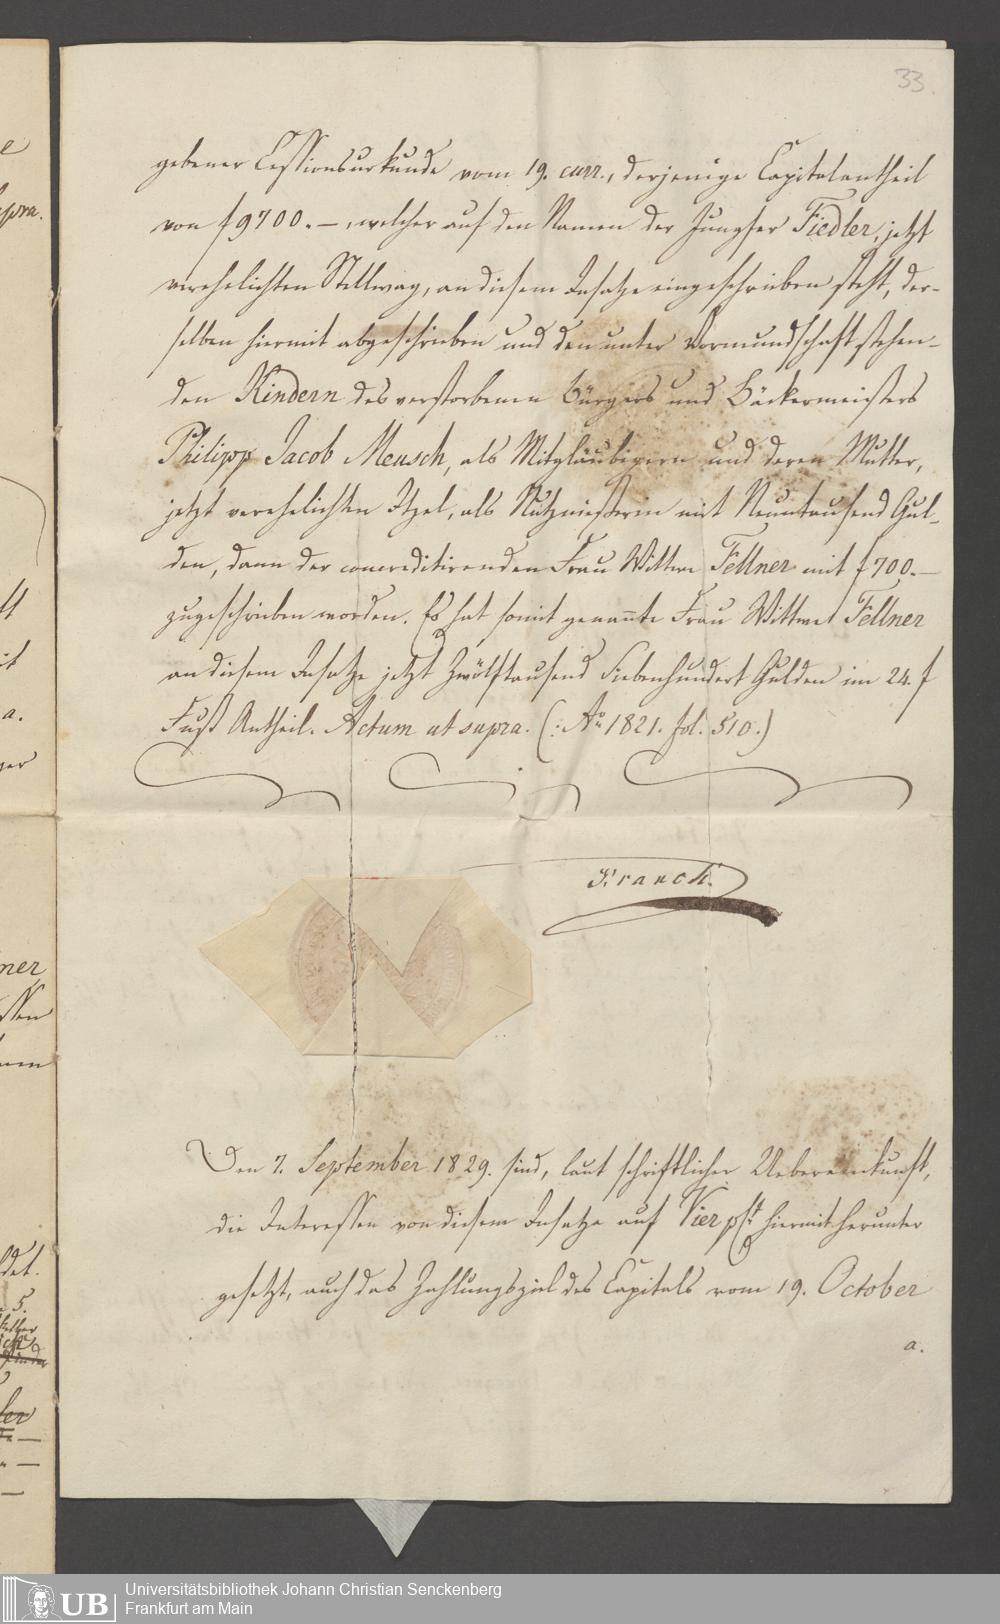 33.
gebener Cessionsurkunde vom 19. curr., derjenige Capitalantheil
von f 9700.—, welcher auf den Namen der Jungfer Fiedler, jetzt
verehelichten Stellwag, an diesem Insatze eingeschrieben steht, der-
selben hiermit abgeschrieben und den unter Vormundschaft stehen-
den Kindern des verstorbenen Bürgers und Bäckermeisters
Philipp Jacob Meusch, als Mitgläubigern und deren Mutter,
jetzt verehelichten Itzel, als Nutznießerin mit Neuntausend Gul-
den, dann der concreditirenden Frau Wittwe Fellner mit f 700.—
zugeschrieben worden. Es hat somit genannte Frau Wittwe Fellner
an diesem Insatze jetzt Zwölftausend Siebenhundert Gulden im 24. f
Fuß Antheil. Actum ut supra. (: Ao 1821. fol. 510.)
Franck.
Den 7. September 1829. sind, laut schriftlicher Uebereinkunft,
die Interessen von diesem Insatze auf Vier pCt hiermit herunter
gesetzt, auch das Zahlungsziel des Capitals vom 19. October
a.
UB
Universitätsbibliothek Johann Christian Senckenberg
Frankfurt am Main